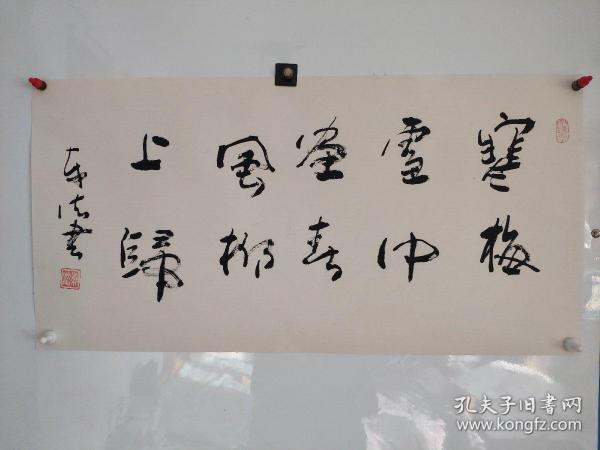 寒梅
雪中
盡春
風柳
上歸
書
孔夫子旧书网
www.kongfz.com